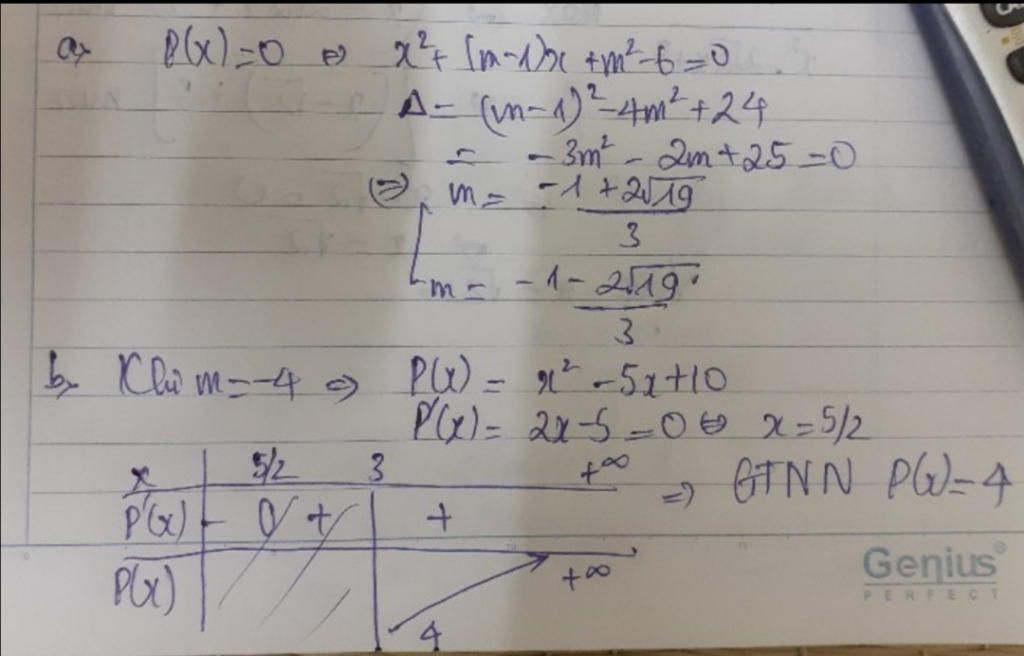 a, P(x)=0 ⇔ x²+(m-1)x+m²-6=0
Δ= (m-1)²-4m²+24
= -3m²-2m+25=0
(=) m= -1+2√19
3
m= -1-2√19
3
b, Khi m=-4 ⇒ P(x)= x²-5x+10
P'(x)= 2x-5=0 ⇔ x=5/2
x 5/2 3 +∞ ⇒ GTNN P(x)=4
P'(x) - 0 + +
P(x) +∞
4
Genius®
PERFECT